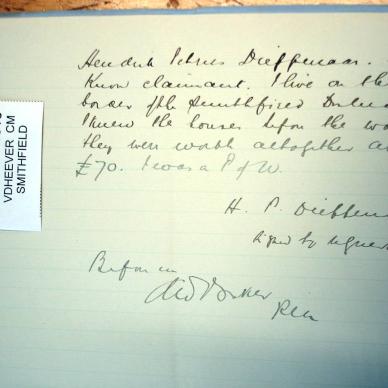 Hendrik Petrus Dieppenaar.
Know claimant. I live on the
border of the Smithfield
I knew the houses before the wa
they were worth altogether a
£70. I was a P of W.
H. P. Dieppena
signed by
Before me
VDHEEVER CM
SMITHFIELD